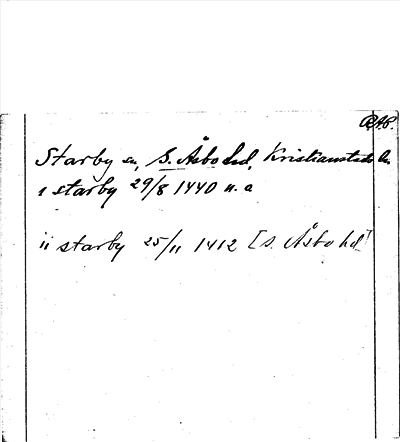 RAP.
Starby sn, S. Åsbo hd, Kristianstads län
i starby 29/8 1440 n. a
ii starby 25/11 1412 [S. Åsbo hd]